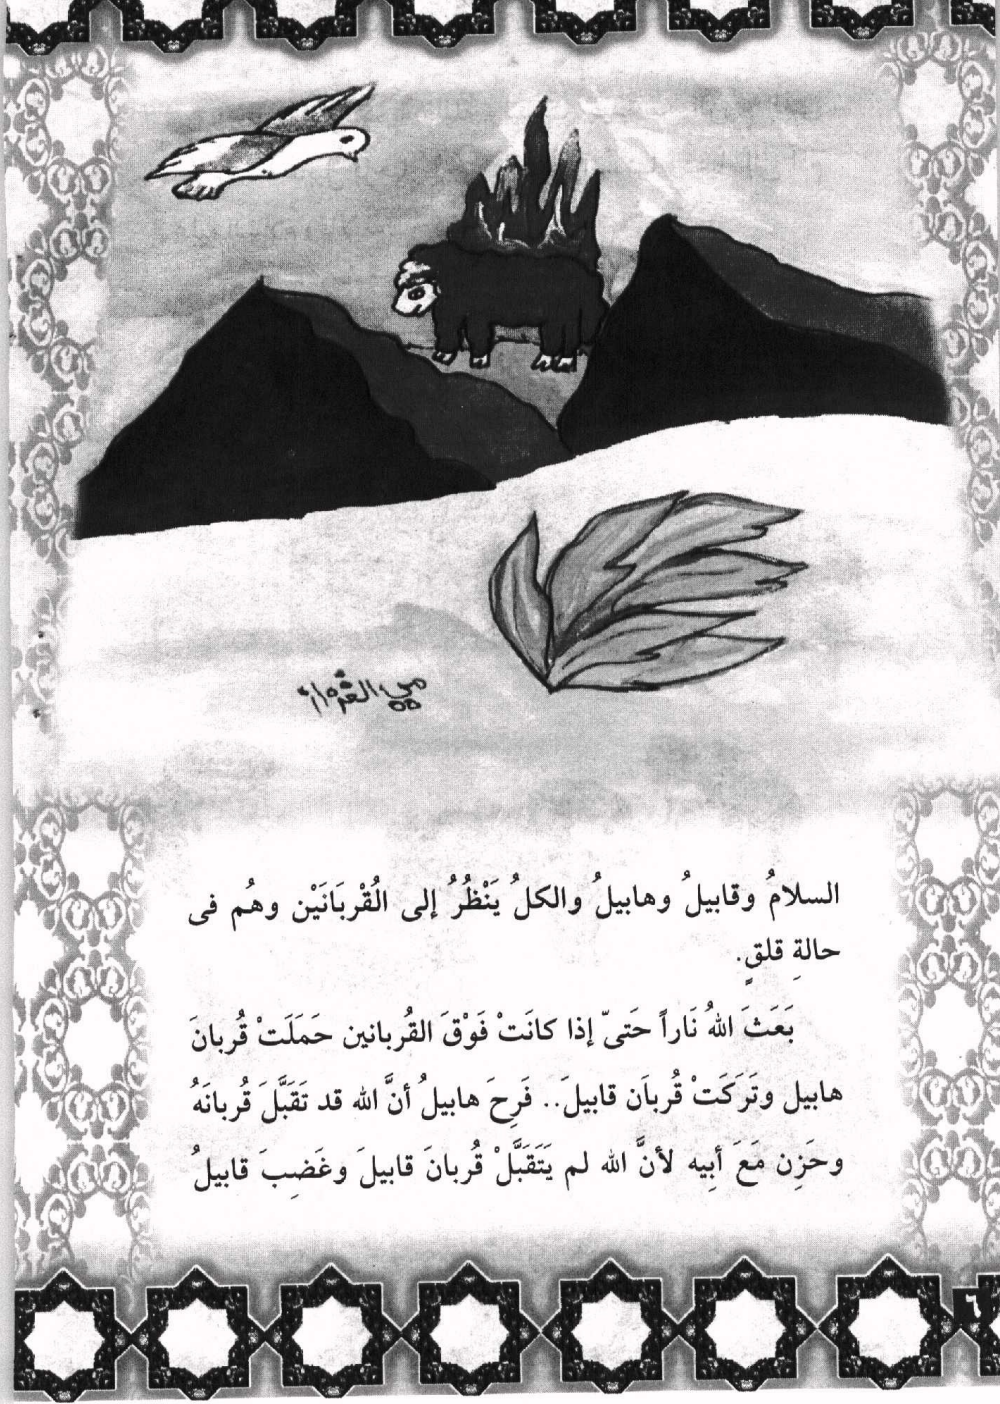 السلامُ وقابيلُ وهابيلُ والكلُ يَنْظُرُ إلى الُقْربَانَيْن وهُم فى
حالةِ قلقٍ.
بَعَثَ اللهُ نَاراً حَتىّ إذا كانَتْ فَوْقَ القُربانين حَمَلَتْ قُربانَ
هابيل وتَرَكَتْ قُربَان قابيلَ.. فَرِحَ هابيلُ أنَّ الله قد تَقَبَّلَ قُربانَهُ
وحَزِن مَعَ أبيه لأنَّ الله لم يَتَقَبَّلْ قُربانَ قابيلَ وغَضِبَ قابيلُ
٦